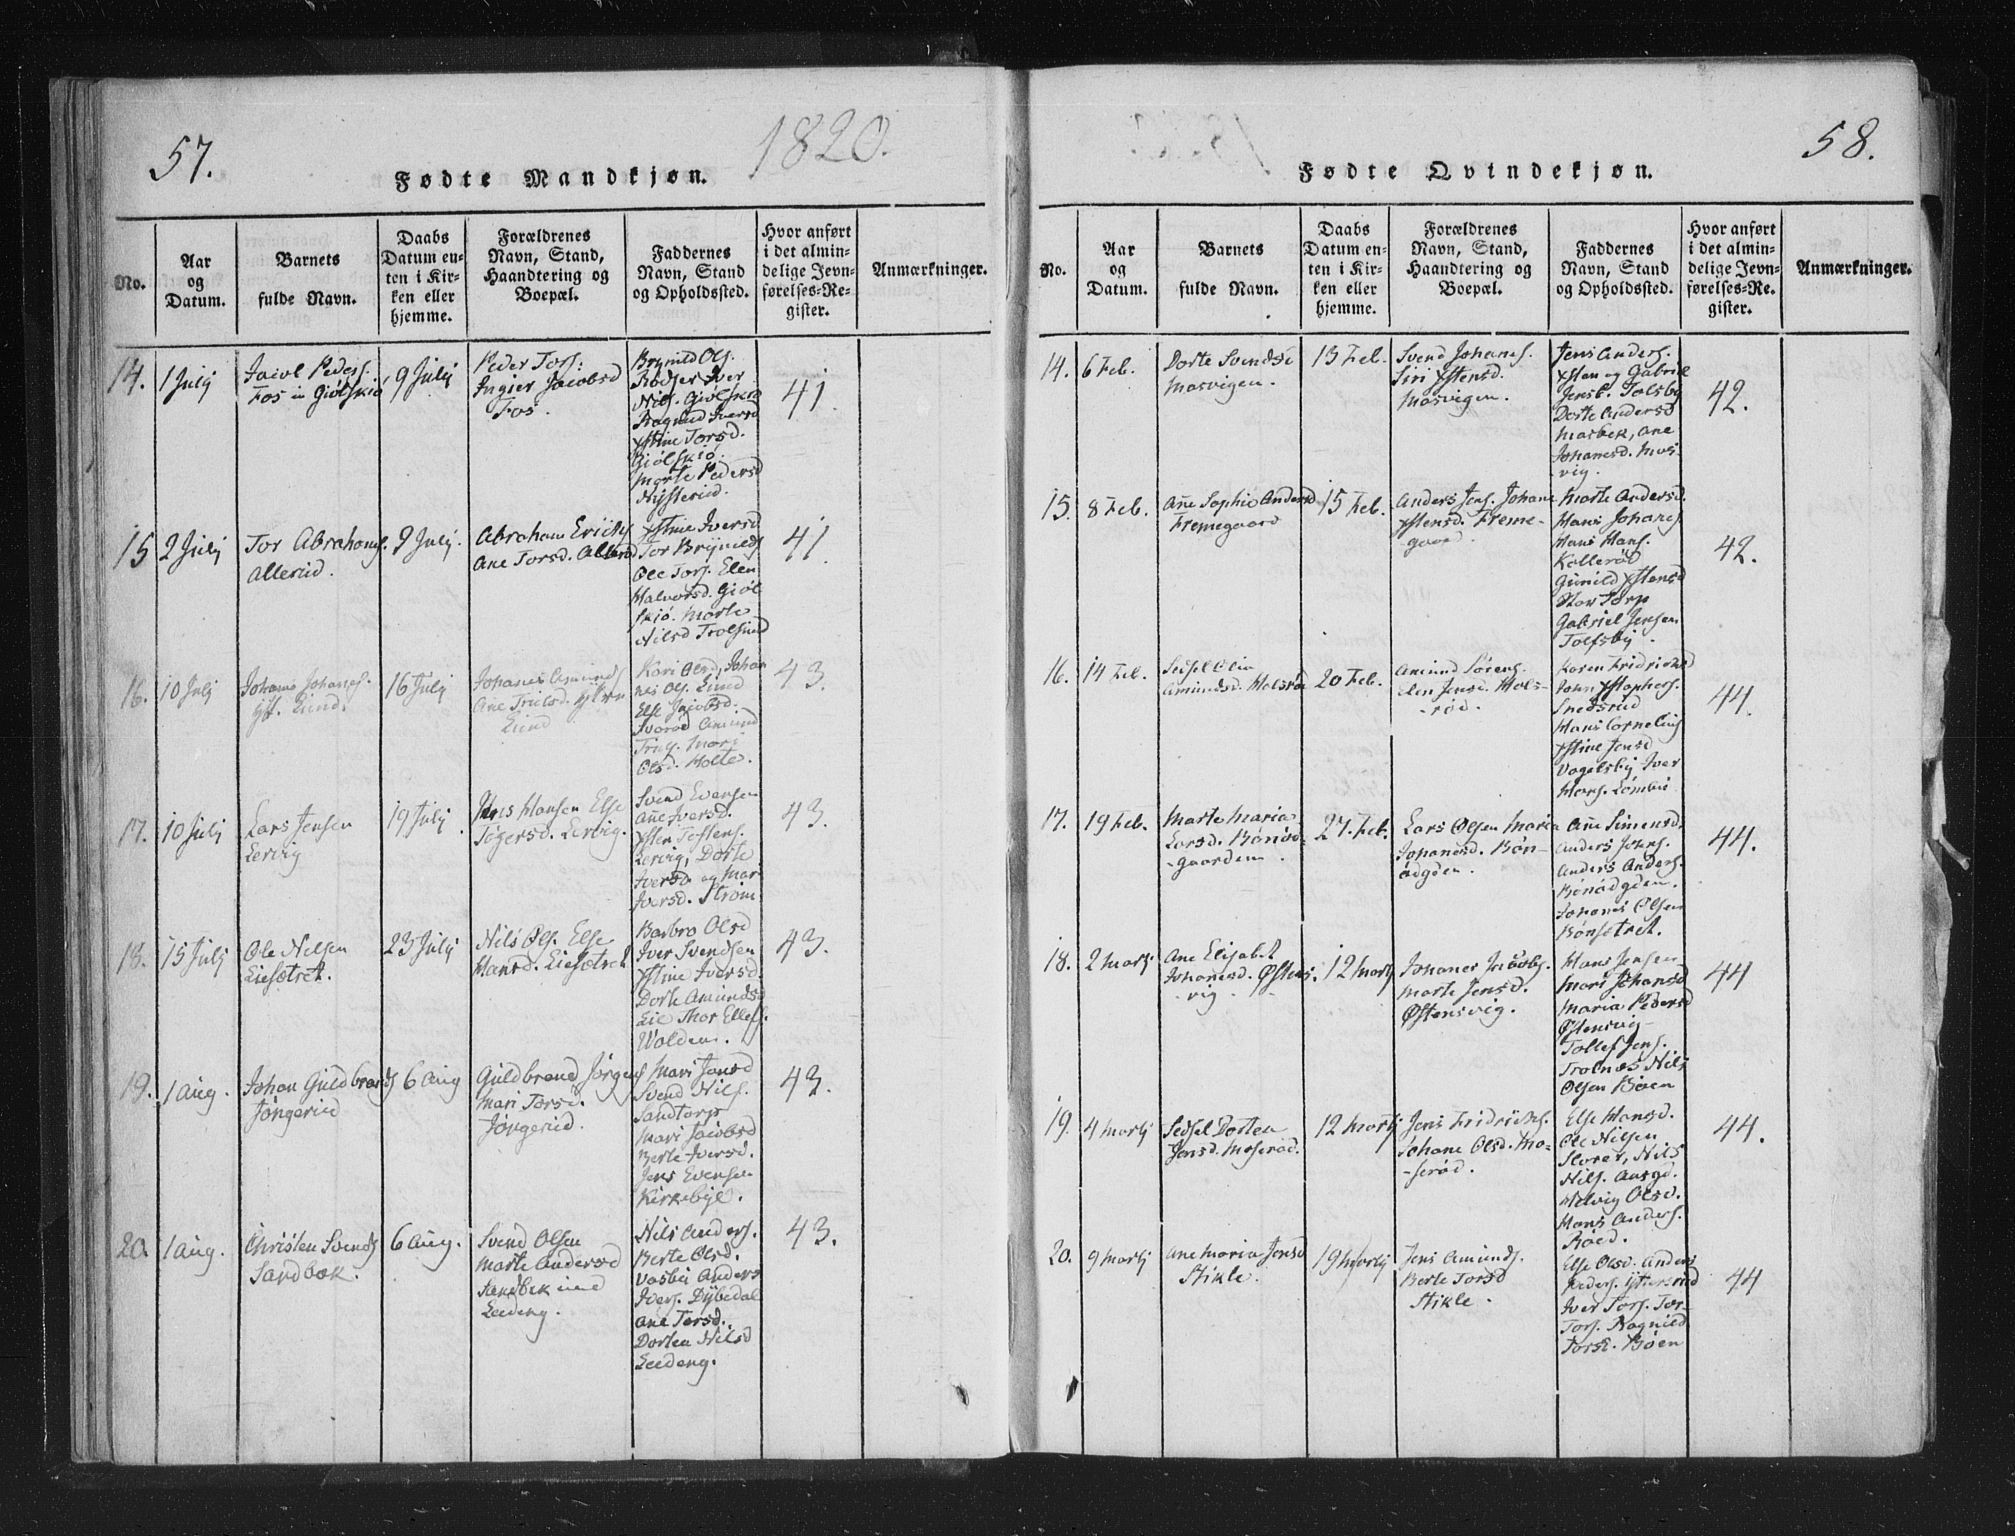 57.
1820.
Fødte Mandkjøn.
No.
Aar
og
Datum.
Barnets
fulde Navn.
Daabs
Datum en-
ten i Kir-
ken eller
hjemme.
Forældrenes
Navn, Stand,
Haandtering og
Boepæl.
Faddernes
Navn, Stand
og Opholdssted.
Hvor anført
i det almin-
delige Jevn-
førelses-Re-
gister.
Anmærkninger.
14.
1 Julj
Jacob Peders.
Fos in Giølskiø
9 Julij
Peder Tors:
Ingier Jacobsd
Fos.
Brynild Ols.
Rødser Iver
Nils. Giølskiø
Ragnild Iversd
Xstine Torsd.
Giølskiø.
Marte Pedersd
41
15
2 Julj
Tor Abrahams.
Allerud.
9 Julj.
Abraham Erichs
Ane Torsd. Allerud
Xstine Iversd
Tor Brynilds
Ole Tors. Elen
Halvorsd. Giøl
skiø. Marte
Nilsd Trolsrud
41
16.
10 Julj
Johanes Johanes.
Eiind.
16 Julj
Johanes Amunds
Ane Truilsd.
Eiind
Kari Olsd, Johan
nes Ols. Eiind
Else Jacobsd.
Amund
Mari
Olsd. Holte.
43.
17.
10 Julj
Lars Jensen
Lervig
19 Julj
Jens Hansen Else
Tøgersd. Lervig.
Svend Evensen
Ane Iversd.
Xsten Tostens.
Lervig, Dorte
Iversd. og Mar
Iversd. Strøm.
43.
18.
15 Julj
Ole Nilsen
Liesætret.
23 Julj
Nils Ols. Else
Hansd. Liesætret
Barbro Olsd
Iver Svendsen
Xstine Iversd.
Dorte Amundsd
Lie Thor Ellefs.
Wolden.
43.
19.
1 Aug.
Johan Guldbrands
Jøngerud
6 Aug
Guldbrand Jørgens
Mari Torsd.
Jøngerud.
Mari Jensd
Svend Nils.
Sandtorp
Mari Jacobsd
Berte Iversd.
Jens Evensen
Kirkebye.
43.
20.
1 Aug.
Christen Svends
Sandbæk.
6 Aug.
Svend Olsen
Marte Andersd
Sandbek
Leedeng.
Nils Anders.
Berte Olsd.
Vasbii Anders
Ivers. Dybedal
Ane Torsd.
Dorten Nilsd
Leedeng.
43.
58.
Fødte Qvindekjøn.
No.
Aar
og
Datum.
Barnets
fulde Navn.
Daabs
Datum en-
ten i Kir-
ken eller
hjemme.
Forældrenes
Navn, Stand,
Haandtering og
Boepæl.
Faddernes
Navn, Stand
og Opholdssted.
Hvor anført
i det almin-
delige Jevn-
førelses-Re-
gister.
Anmærkninger.
14.
6 Feb.
Dorte Svendsd
Mosvigen.
13 Feb.
Svend Johanes.
Siri Xstensd.
Mosvigen.
Jens Anders.
Xsten og Gabriel
Jens. Tolsby
Dorte Andersd
Morbek, Ane
Johanesd. Mos
vig.
42.
15.
8 Feb.
Ane Sophie Andersd
Fremegaard
15 Feb.
Anders Jens. Johane
Xstensd. Freme-
gaard.
Marte Andersd.
Hans Johanes
Hans Hans.
Kollerød
Gunild Xstensd
Stor Torp
Gabriel Jensen
Tolfsby.
42.
16.
14 Feb.
Sedsel Olia
Amundsd. Holsrød
20 Feb.
Amund Sørens.
Elen Jensd. Hols-
rød.
Karen Fridrichsd
John Xstophers.
Snedsrud
Hans Cornelius
Xstine Jensd
Vogelsby Iver
44.
17.
19 Feb.
Marte Maria
Larsd. Bønød-
gaarden
27. Feb.
Lars Olsen Maria
Johanesd. Bøn-
ødgden.
Ane Simensd,
Anders
Anders Anders.
Bønødgden.
Johanes Olsen
Bønsætret.
44.
18.
2 Martj
Ane Elisabet
Johanesd. Østens-
vig.
12 Martj
Johanes Jacobs.
Marte Jensd.
Østensvig.
Hans Jensen
Mari Johansd
Maria Pedersd
Østensvig
Tollef Jens.
Trolnæs Nils
Olsen Bøen
44
19.
4 Martj
Sedsel Dorten
Jensd. Moserød.
12 Martj
Jens Fridrichs.
Johane Olsd. Mo-
serød.
Else Hansd.
Ole Nilsen
Slorer, Nils
Nils.
Helvig Olsd.
Hans Anders.
Røed.
44.
20.
9 Martj
Ane Maria Jensd
Stikle.
19 Martj
Jens Amunds.
Berte Torsd
Stikle.
Else Olsd. Anders
Peders.
Iver Tors. Tor
Tors. Ragnild
Torsd. Bøen
44